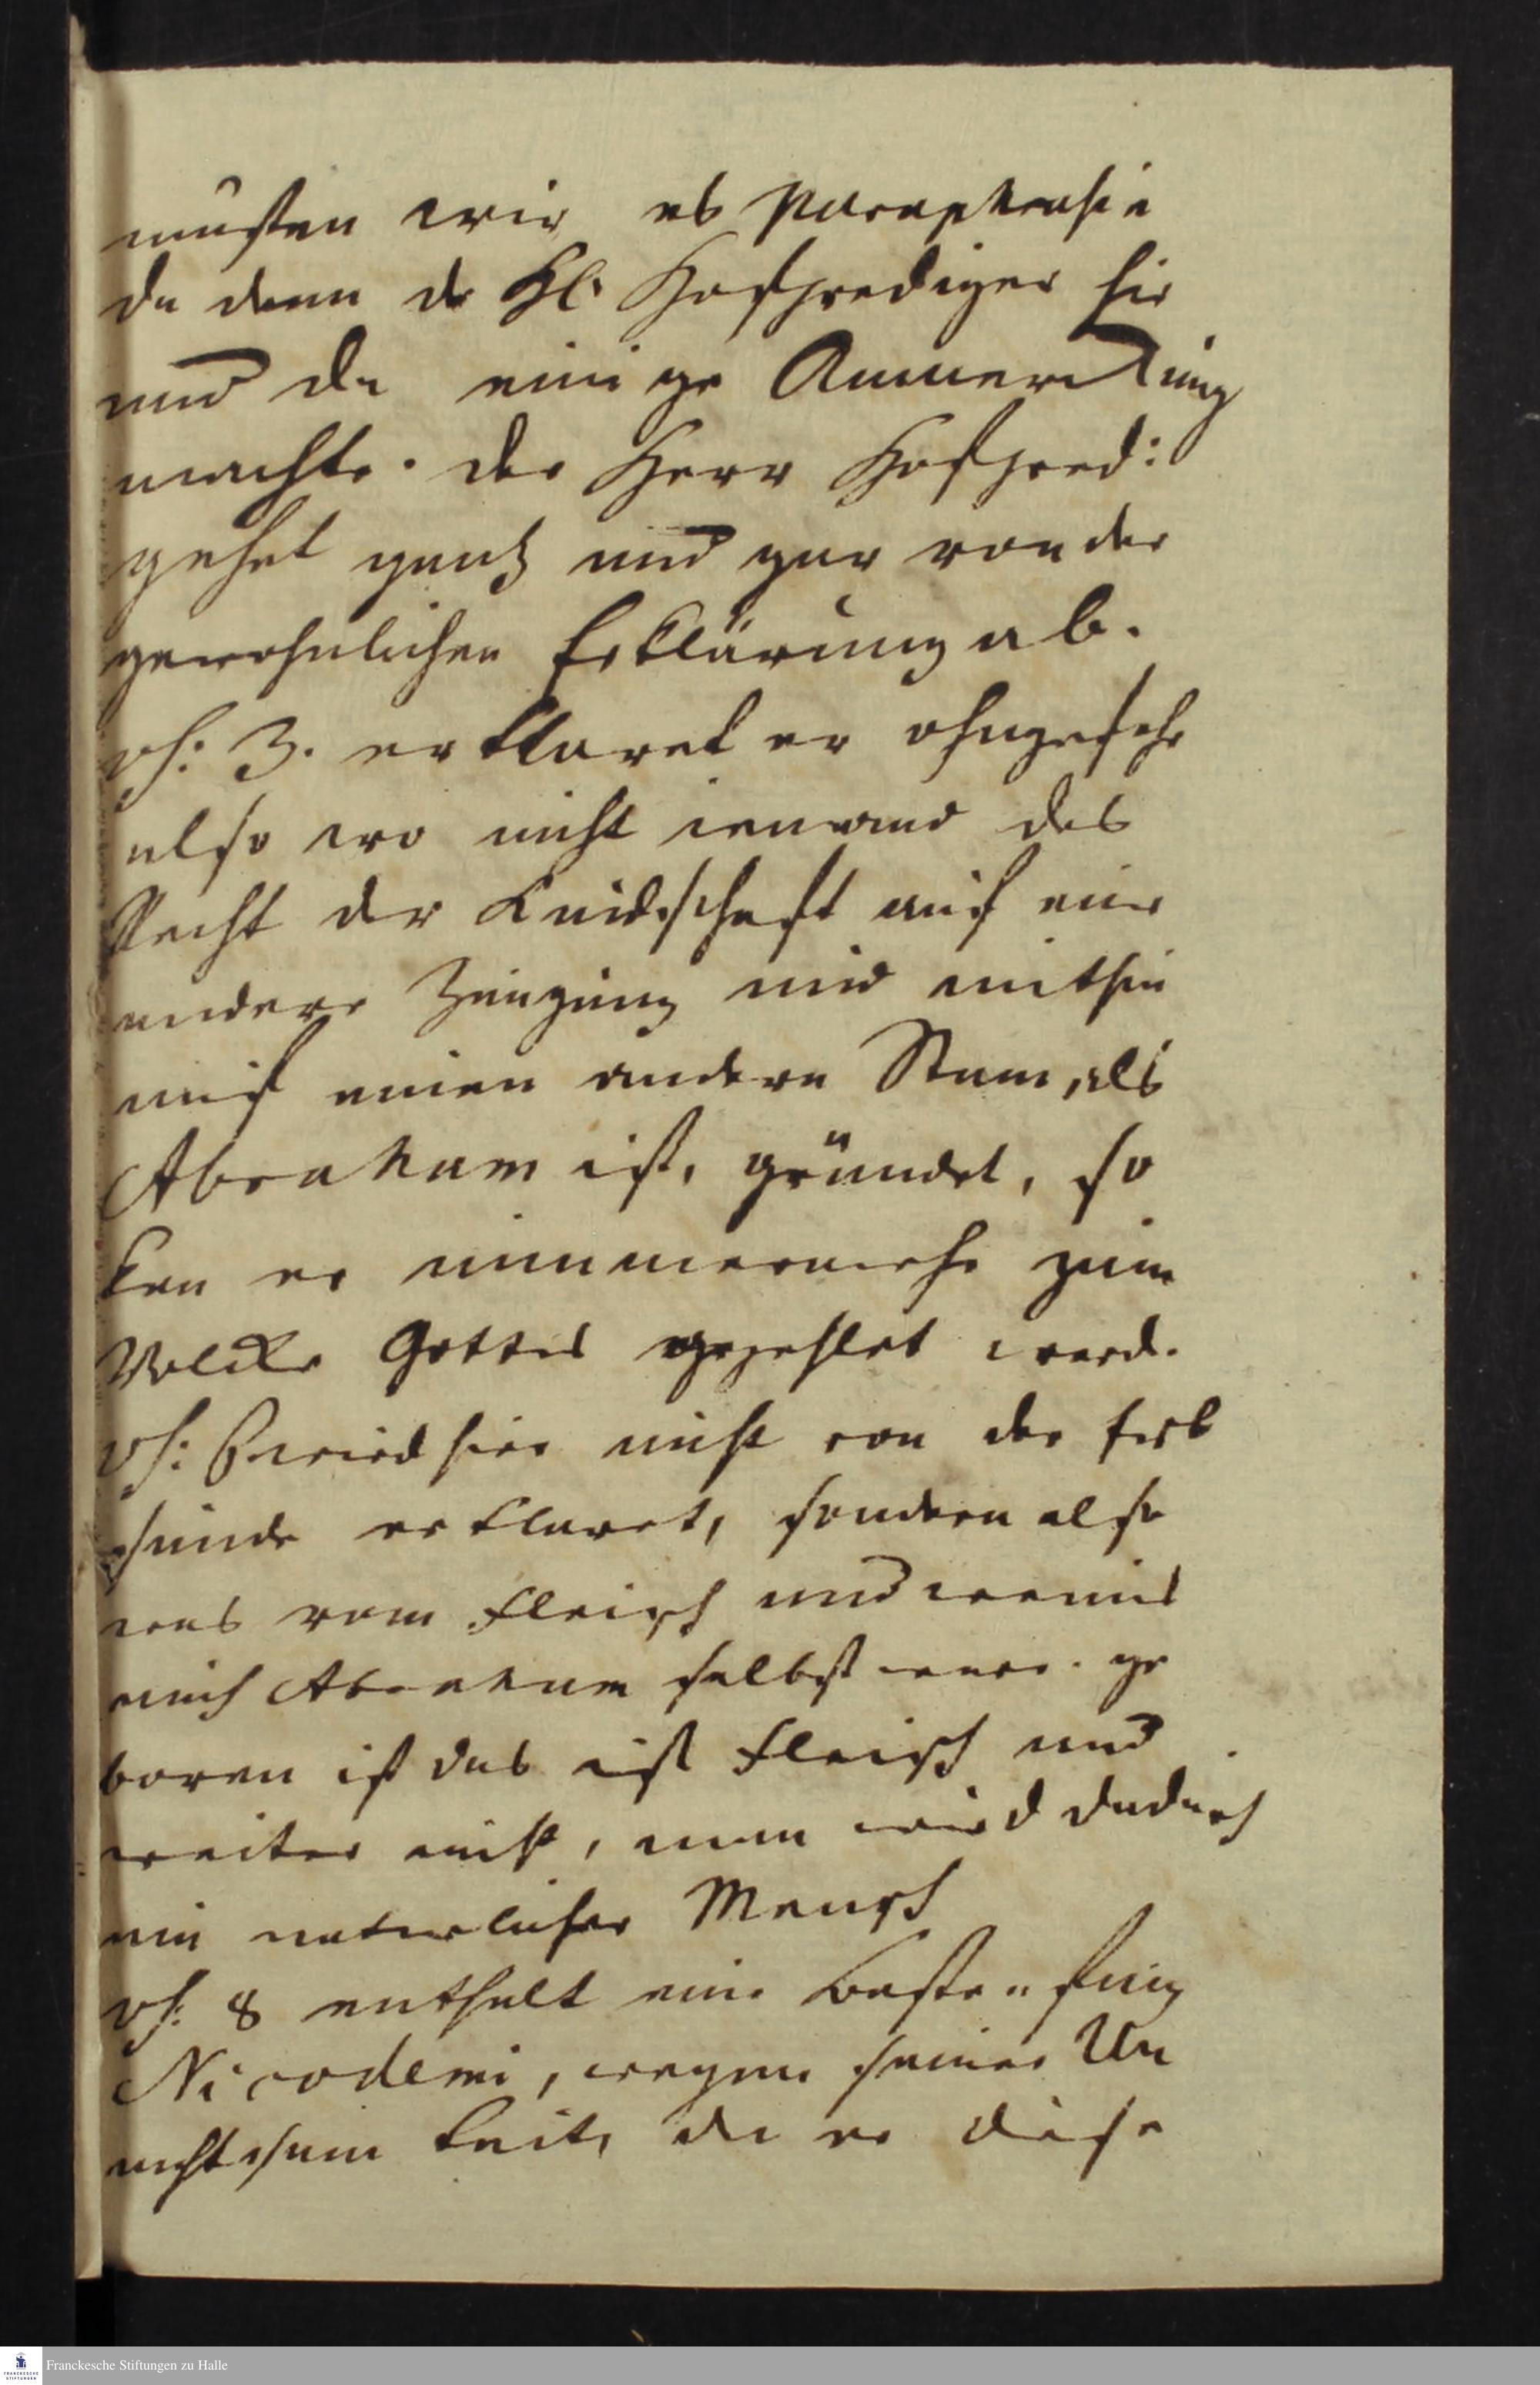 musten wir es paraphrasie
da denn der H. Hofprediger hie
und da einige Anmerckung
machte. der Herr Hofpred:
gehet gantz und gar von der
gewohnlichen Erklärung ab.
vs: 3. erklaret er ohngefehr
also wo nicht iemand das
Recht der Kindschaft auf eine
andere Zeugung und mithin
auf einen andern Stam, als
Abraham ist, gründet, so
kan er nimmermehr zum
Volcke Gottes gezehlet werd.
vs: 6 wird hier nicht von der Erb
sünde erklaret, sondern also
was vom Fleisch und wenns
auch Abraham selbst ware. ge
boren ist das ist Fleisch und
weiter nicht, man wird dadurch
ein naturlicher Mensch
vs: 8 enthalt eine Bestrafung
Nicodemi, wegen seiner Un
achtsam keit, da er diese
Franckesche Stiftungen zu Halle